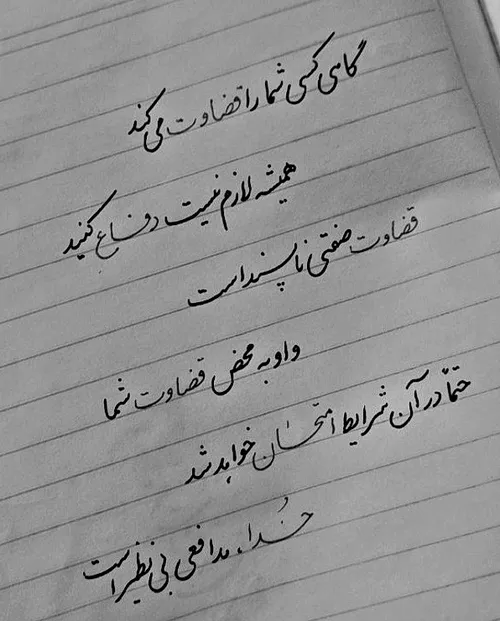 گاهی کسی شما را قضاوت می کند
همیشه لازم نیست دفاع کنید
قضاوت صفتی ناپسند است
و او به محض قضاوت شما
حتماً در آن شرایط امتحان خواهد شد
خُدا، مدافعی بی نظیر است